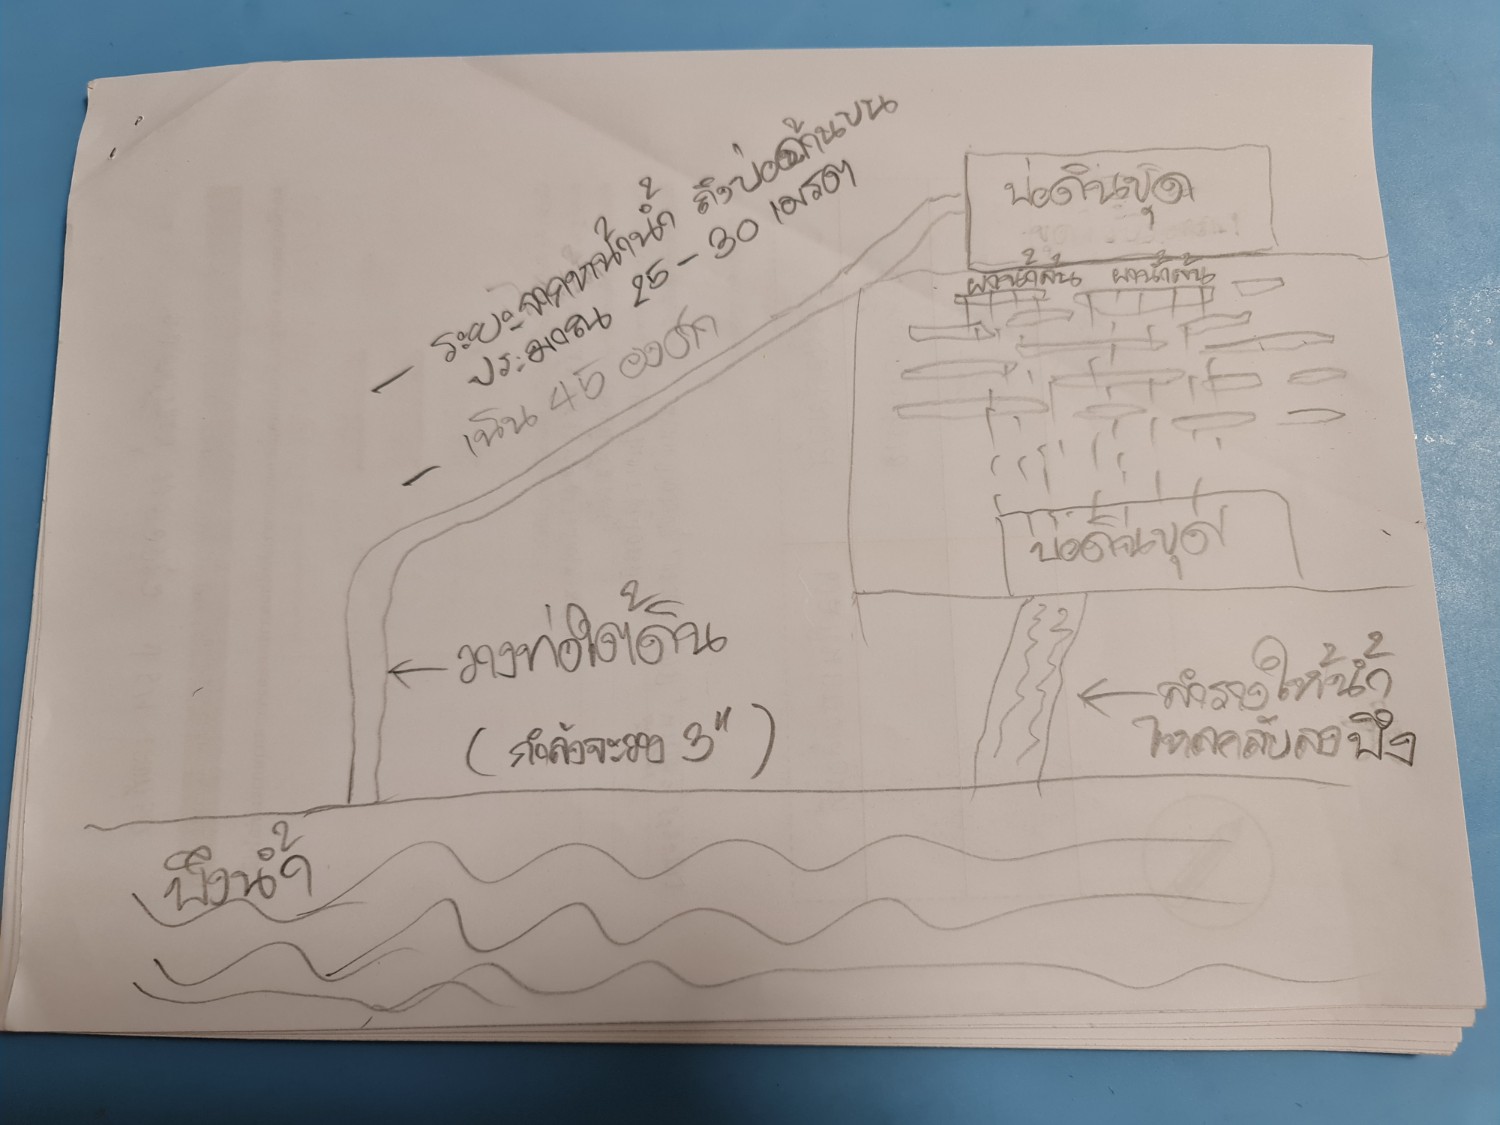 - ระยะจากหน้าน้ำ ถึงบ่อด้านบน
ประมาณ 25 - 30 เมตร
- เนิน 45 องศา
บ่อดินขุด
ผาน้ำล้น ผาน้ำล้น
บ่อดินขุด
วางท่อใต้ดิน
(กำลังจะวาง 3")
ลำรางให้น้ำ
ไหลกลับลงบึง
บึงน้ำ